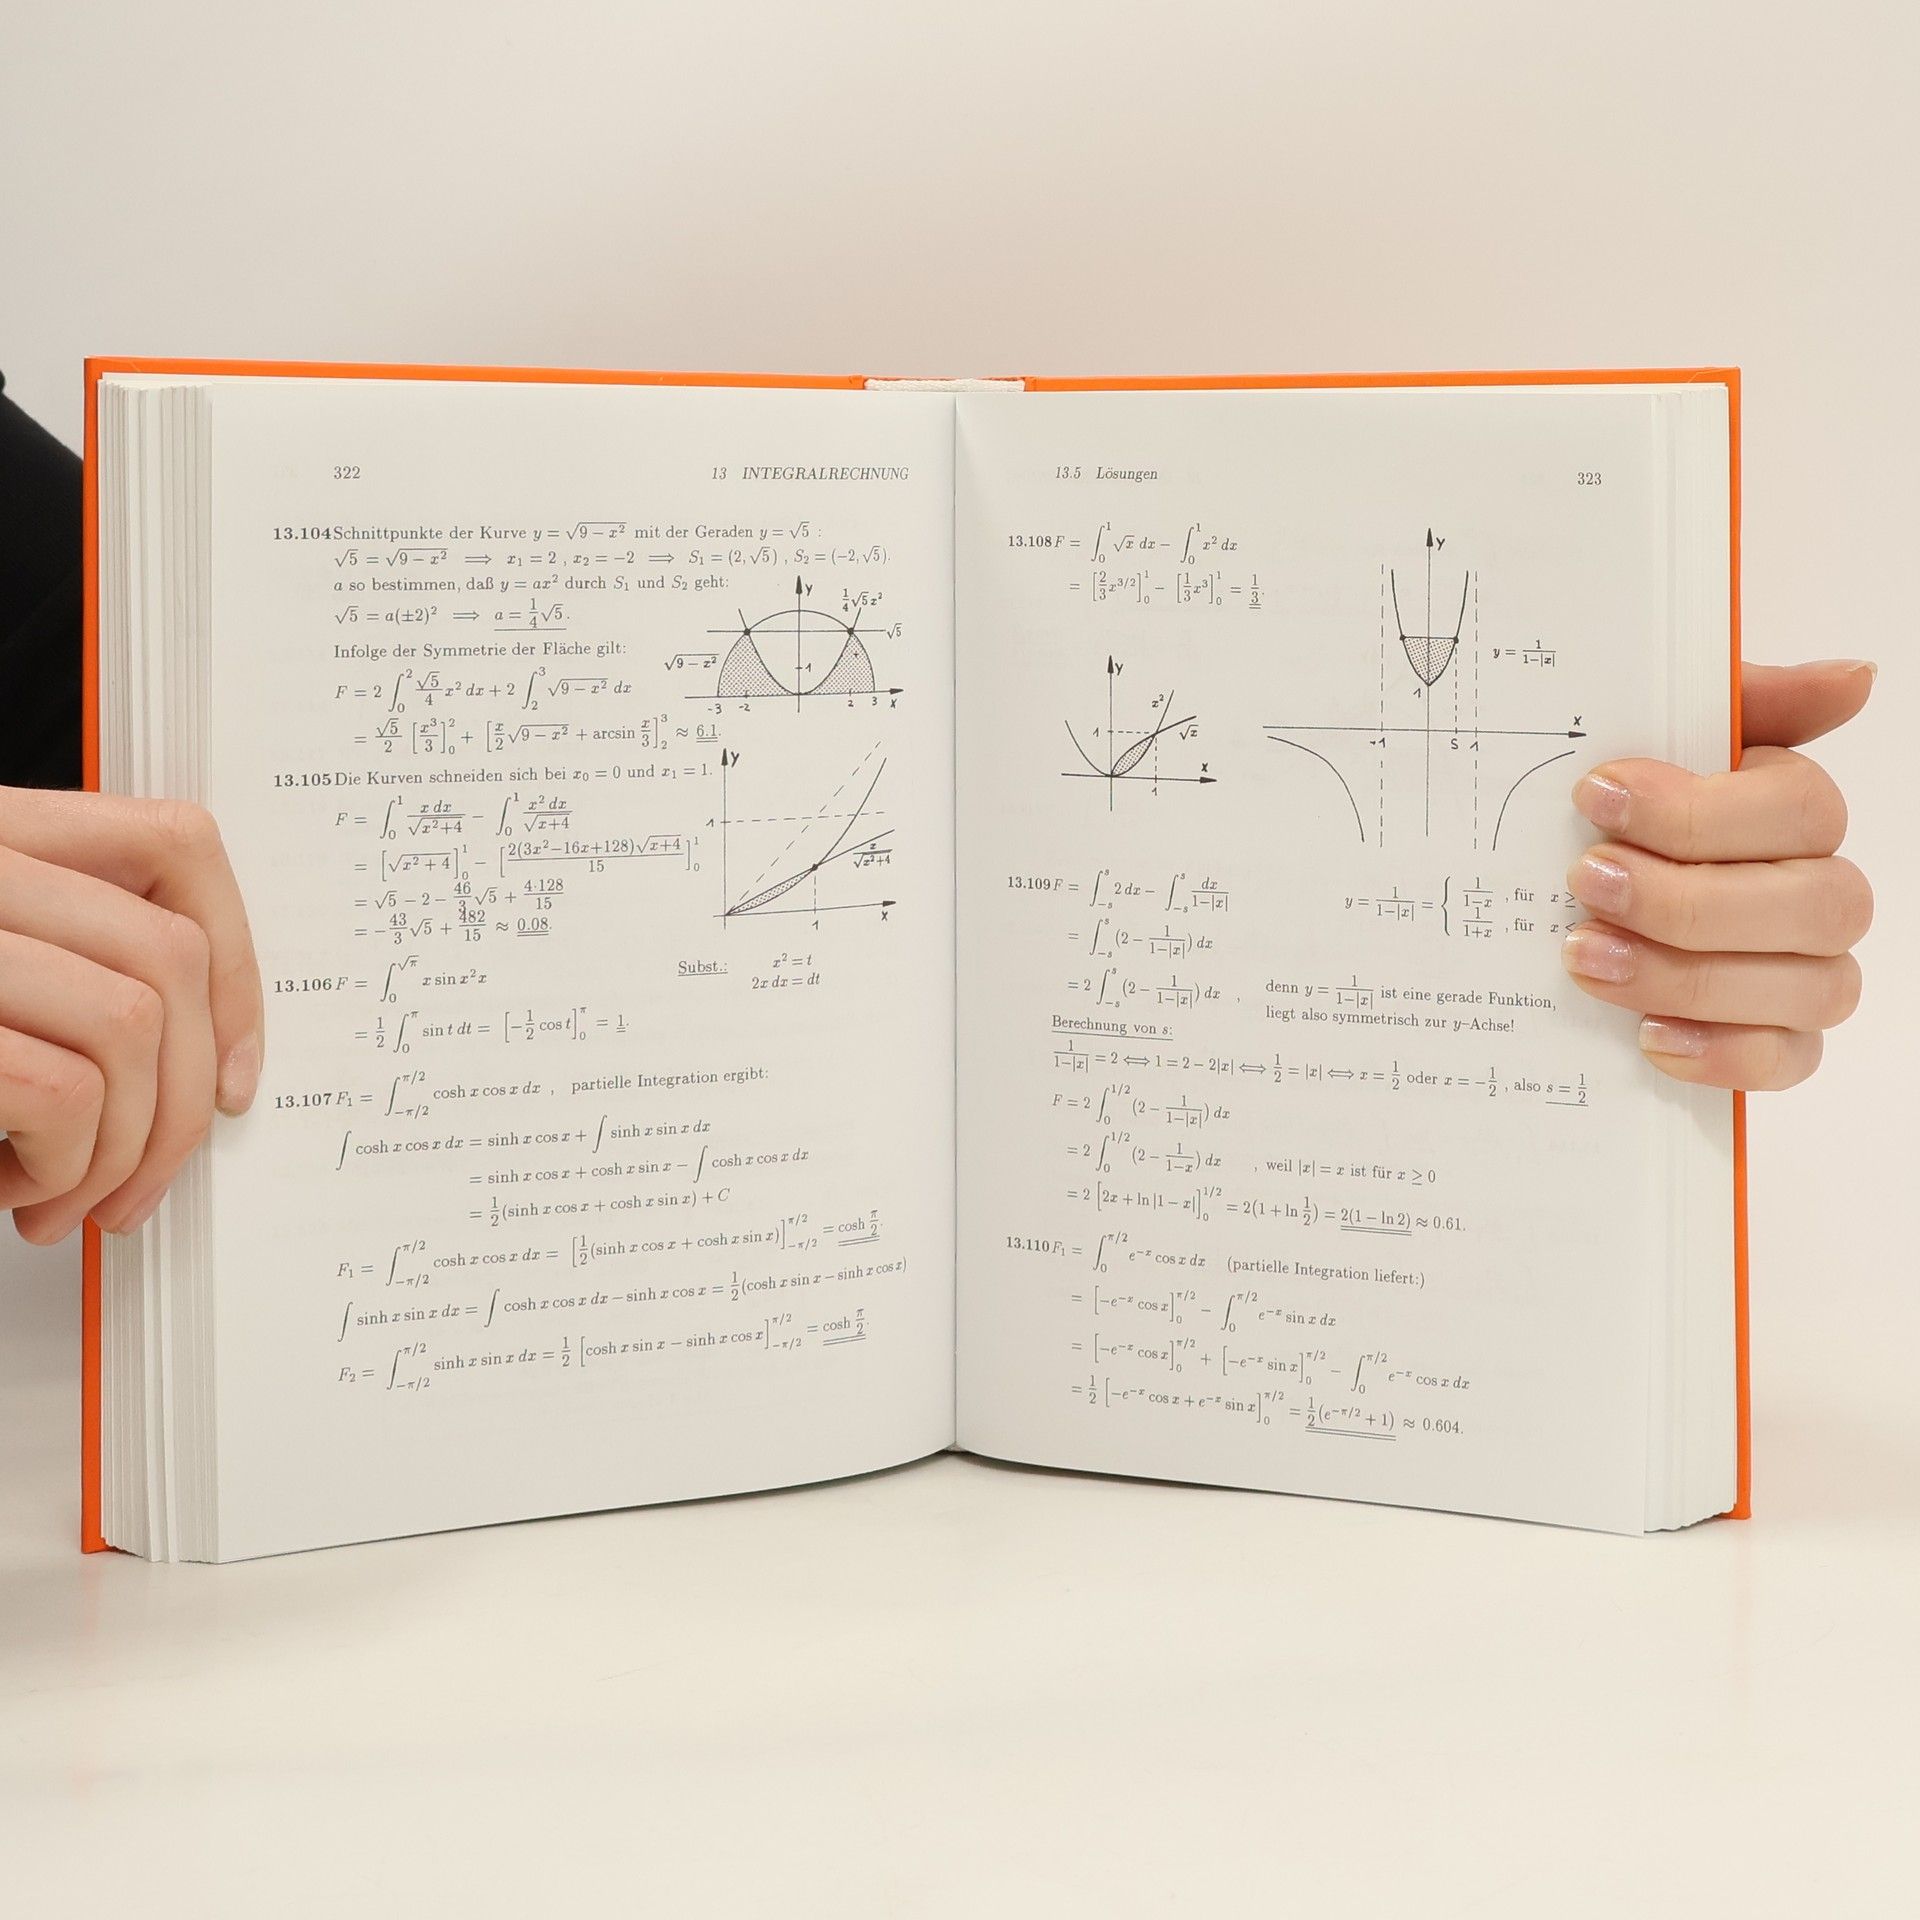 322 13 INTEGRALRECHNUNG
13.104 Schnittpunkte der Kurve y = √(9 − x²) mit der Geraden y = √5 :
√5 = √(9 − x²) ⟹ x₁ = 2 , x₂ = −2 ⟹ S₁ = (2, √5) , S₂ = (−2, √5).
a so bestimmen, daß y = ax² durch S₁ und S₂ geht:
√5 = a(±2)² ⟹ a = 1/4 √5.
Infolge der Symmetrie der Fläche gilt:
F = 2 ∫₀² √5/4 x² dx + 2 ∫₂³ √(9 − x²) dx
= √5/2 [x³/3]₀² + [x/2 √(9 − x²) + arcsin x/3]₂³ ≈ 6.1.
y
1/4 √5 x²
√5
√(9 − x²)
1
-3 -2 2 3 x
13.105 Die Kurven schneiden sich bei x₀ = 0 und x₁ = 1.
F = ∫₀¹ x dx/√(x²+4) − ∫₀¹ x² dx/√(x+4)
= [√(x² + 4)]₀¹ − [2(3x²−16x+128)√(x+4)/15]₀¹
= √5 − 2 − 46/3 √5 + 4·128/15
= −43/3 √5 + 482/15 ≈ 0.08.
y
1
x/√(x²+4)
1 x
13.106 F = ∫₀^√π x sin x² x Subst.: x² = t
2x dx = dt
= 1/2 ∫₀^π sin t dt = [−1/2 cos t]₀^π = 1.
13.107 F₁ = ∫_{−π/2}^{π/2} cosh x cos x dx , partielle Integration ergibt:
∫ cosh x cos x dx = sinh x cos x + ∫ sinh x sin x dx
= sinh x cos x + cosh x sin x − ∫ cosh x cos x dx
= 1/2 (sinh x cos x + cosh x sin x) + C
F₁ = ∫_{−π/2}^{π/2} cosh x cos x dx = [1/2 (sinh x cos x + cosh x sin x)]_{−π/2}^{π/2} = cosh π/2.
∫ sinh x sin x dx = ∫ cosh x cos x dx − sinh x cos x = 1/2 (cosh x sin x − sinh x cos x)
F₂ = ∫_{−π/2}^{π/2} sinh x sin x dx = 1/2 [cosh x sin x − sinh x cos x]_{−π/2}^{π/2} = cosh π/2.
13.5 Lösungen 323
13.108 F = ∫₀¹ √x dx − ∫₀¹ x² dx
= [2/3 x^{3/2}]₀¹ − [1/3 x³]₀¹ = 1/3.
y
x²
√x
1
x
1
y
y = 1/(1−|x|)
1
x
-1 S 1
13.109 F = ∫_{−s}^{s} 2 dx − ∫_{−s}^{s} dx/(1−|x|) y = 1/(1−|x|) = { 1/(1−x) , für x ≥
1/(1+x) , für x <
= ∫_{−s}^{s} (2 − 1/(1−|x|)) dx
= 2 ∫_{−s}^{s} (2 − 1/(1−|x|)) dx , denn y = 1/(1−|x|) ist eine gerade Funktion,
liegt also symmetrisch zur y–Achse!
Berechnung von s:
1/(1−|x|) = 2 ⟺ 1 = 2 − 2|x| ⟺ 1/2 = |x| ⟺ x = 1/2 oder x = −1/2 , also s = 1/2
F = 2 ∫₀^{1/2} (2 − 1/(1−|x|)) dx
= 2 ∫₀^{1/2} (2 − 1/(1−x)) dx , weil |x| = x ist für x ≥ 0
= 2 [2x + ln |1 − x|]₀^{1/2} = 2(1 + ln 1/2) = 2(1 − ln 2) ≈ 0.61.
13.110 F₁ = ∫₀^{π/2} e^{−x} cos x dx (partielle Integration liefert:)
= [−e^{−x} cos x]₀^{π/2} − ∫₀^{π/2} e^{−x} sin x dx
= [−e^{−x} cos x]₀^{π/2} + [−e^{−x} sin x]₀^{π/2} − ∫₀^{π/2} e^{−x} cos x dx
= 1/2 [−e^{−x} cos x + e^{−x} sin x]₀^{π/2} = 1/2 (e^{−π/2} + 1) ≈ 0.604.